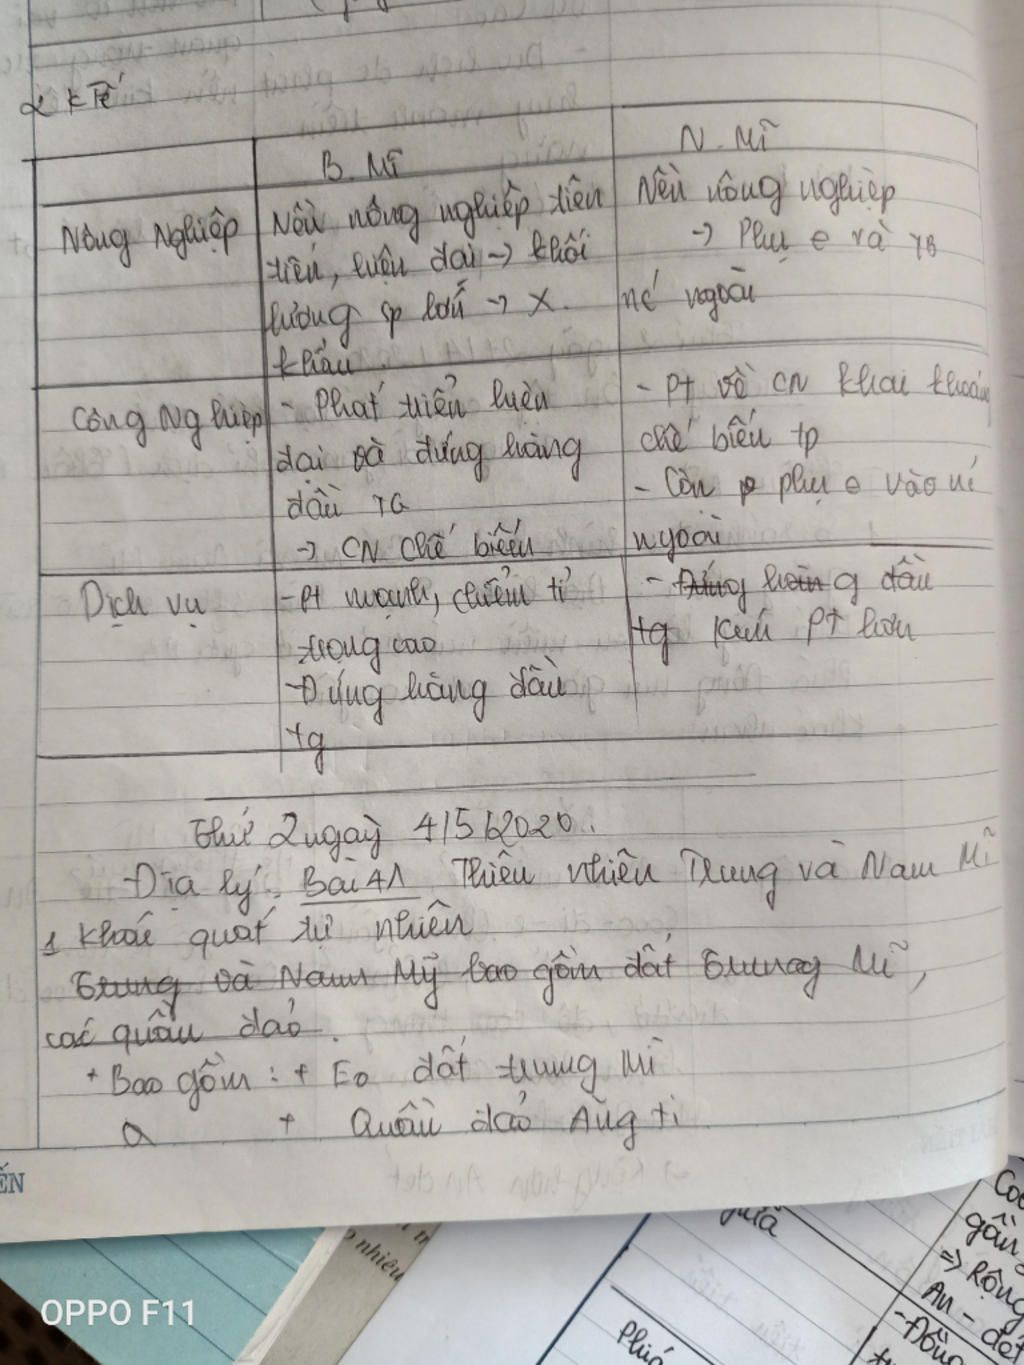 2 KTế
B. Mĩ
N. Mĩ
Nông Nghiệp
Nền nông nghiệp tiên
tiến, hiện đại → khối
lượng sp lớn → X.
khẩu.
Nền nông nghiệp
→ Phụ θ và
nc ngoài
Công Nghiệp
- Phát triển hiện
đại và đứng hàng
đầu TG
→ CN chế biến
- Pt về CN khai khoáng
chế biến tp
- Còn phụ θ vào nc
ngoài
Dịch vụ
- Pt mạnh, chiếm tỉ
trọng cao
- Đứng hàng đầu
tg
- Đứng hàng đầu
tg Kém PT hơn
Thứ 2 ngày 4/5/2020.
Địa lý: Bài 41 Thiên nhiên Trung và Nam Mĩ
1 Khái quát tự nhiên
Trung và Nam Mỹ bao gồm đất Trung Mĩ,
các quần đảo.
+ Bao gồm: + Eo đất trung Mĩ
a + Quần đảo Ăng ti
ẾN
nhiêu
giữa
gồm
⇒ Rộng
An-đét
- Đồng
OPPO F11